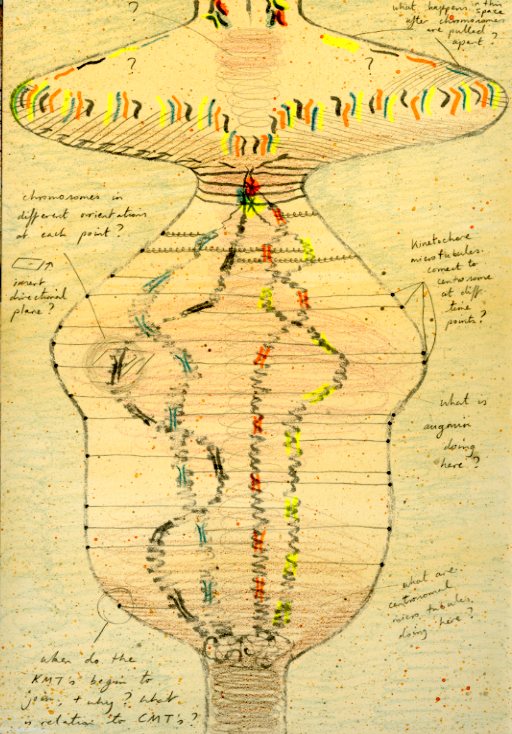 ?
what happens in this
space
after chromosomes
are pulled
apart?
?
?
chromosomes in
different orientations
at each point?
insert
directional
plane?
Kinetochore
microtubules
connect to
centrosome
at diff
time
points?
what is
augmin
doing
here?
what are
centrosomal
microtubules
doing here?
when do the
KMT's begin to
join, + why? what
is relation to CMT's?